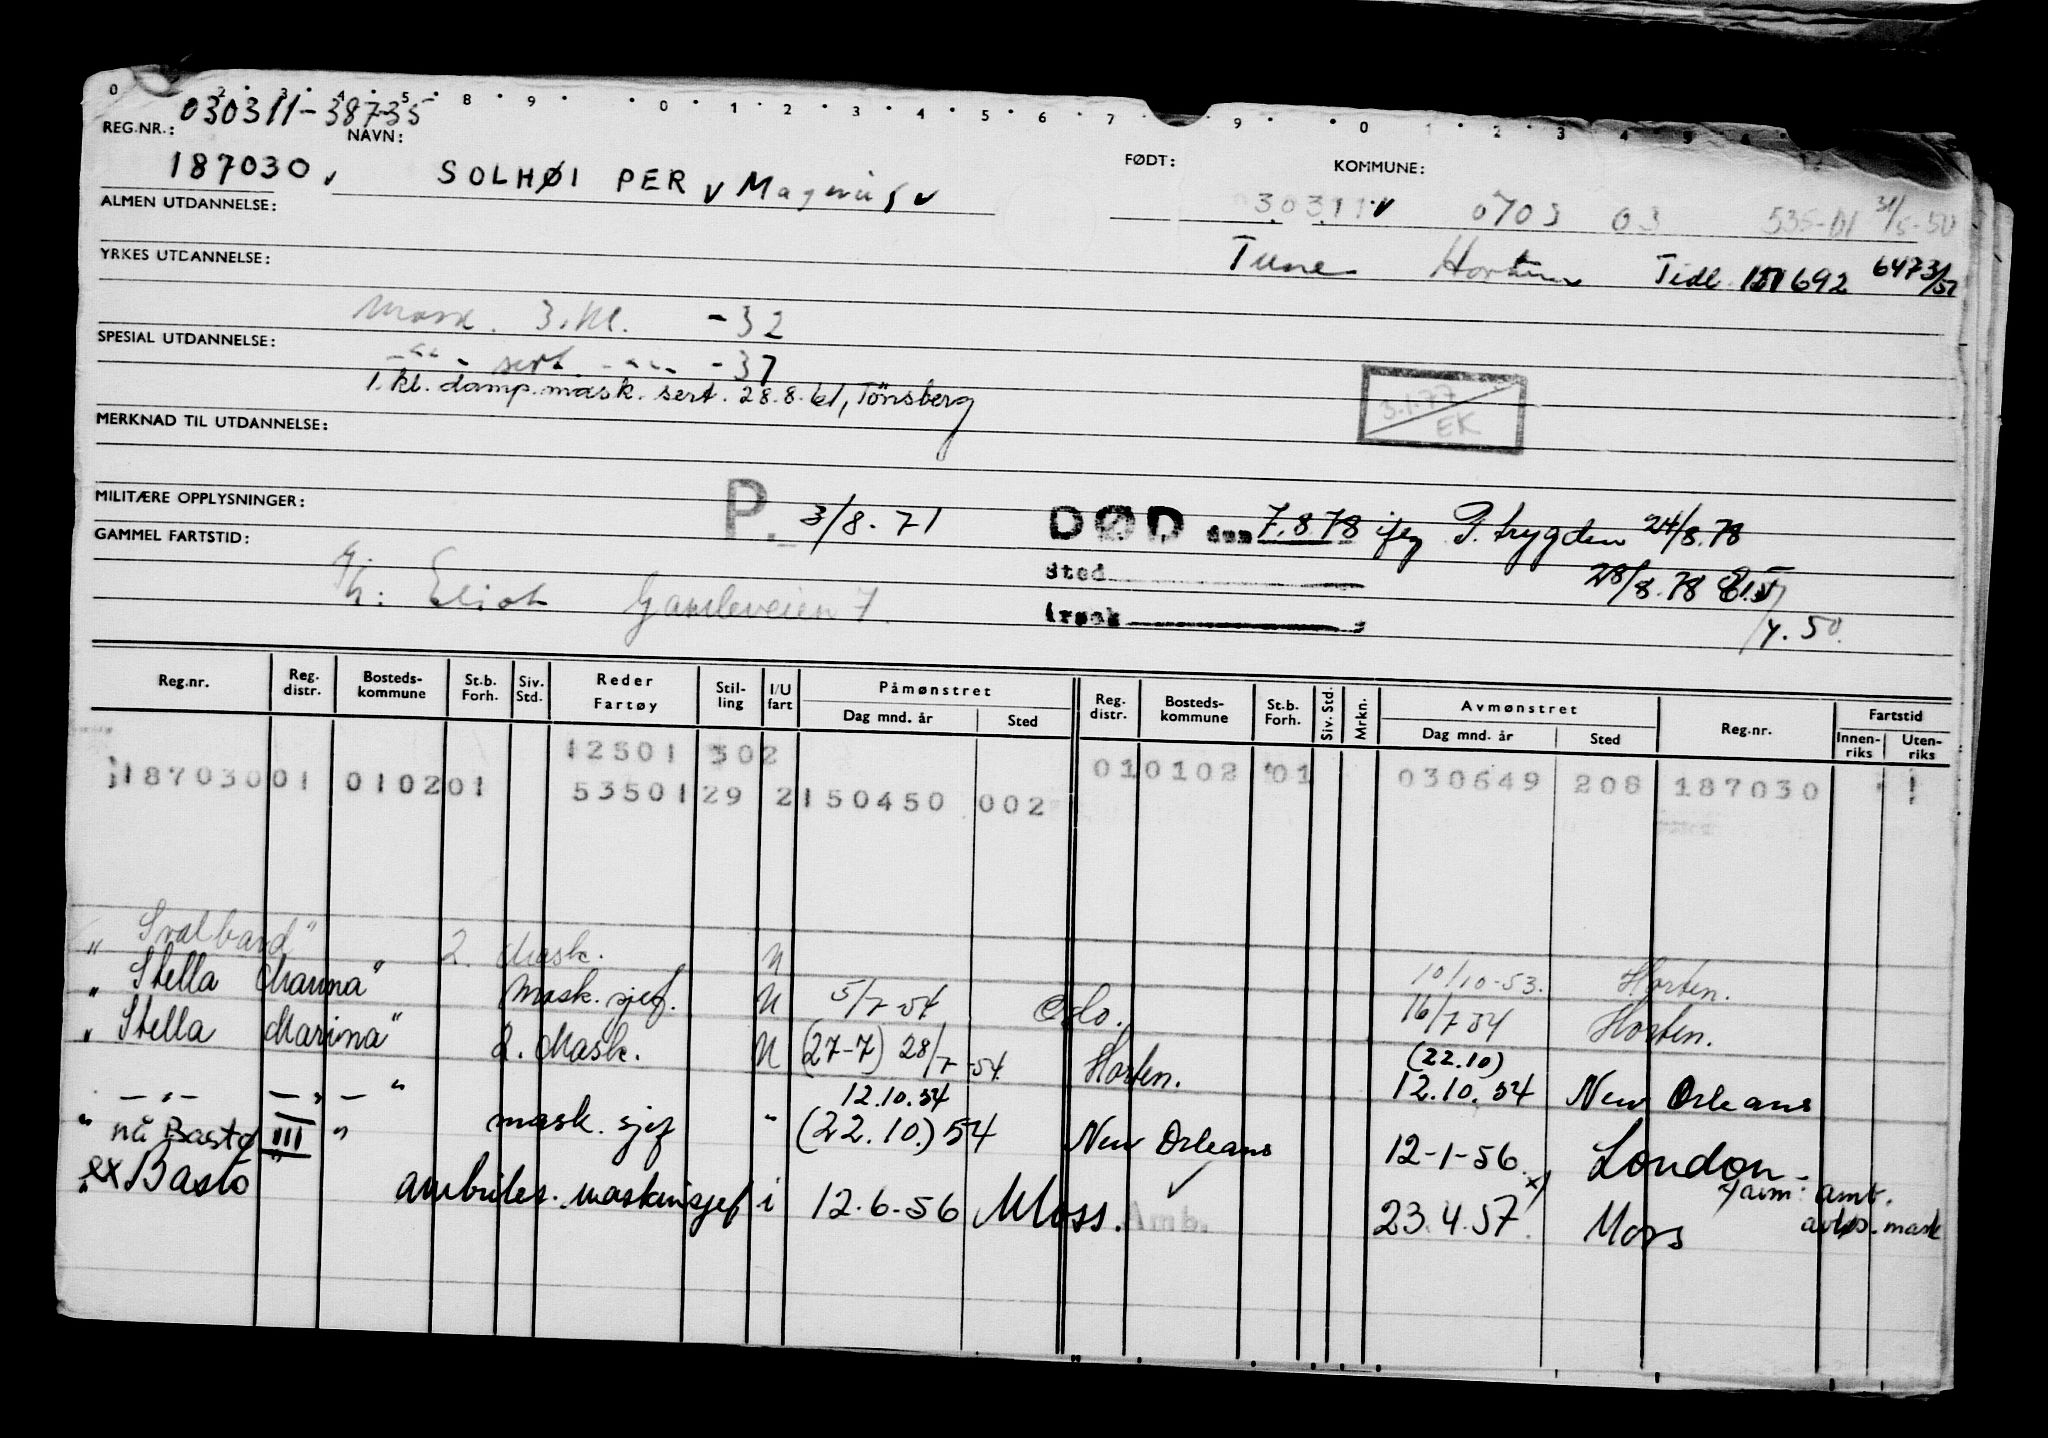 0 2 · 3 · 4 · 5 · 8 · 9 · 0 · 1 · 2 · 3 · 4 · 5 · 6 · 7 · 9 · 0 1 · 2 · 3 4
030311-38735
REG.NR.: NAVN: FØDT: KOMMUNE:
187030 v SOLHØI PER v Magnus v 30311 v 0703 03 535-01 31/5-50
ALMEN UTDANNELSE:
Tune Horten Tidl. 692 6473/51
YRKES UTDANNELSE:
Mask. 3. kl. - 32
SPESIAL UTDANNELSE:
-"- sert. -"- - 37
1. kl. damp.mask. sert. 28.8.61, Tönsberg
3.1.77
EK
MERKNAD TIL UTDANNELSE:
MILITÆRE OPPLYSNINGER:
P. 3/8. 71 DØD den 7.8.78 ifølg P. trygden 24/8.78
GAMMEL FARTSTID:
Sted
28/8.78
Gamleveien 7.
årsak
/4. 50.
Reg.nr. Reg. distr. Bosteds-kommune St.b. Forh. Siv. Std. Reder Fartøy Stil-ling I/U fart Påmønstret Dag mnd. år Sted Reg. distr. Bosteds-kommune St.b. Forh. Siv. Std. Mrkn. Avmønstret Dag mnd. år Sted Reg.nr. Fartstid Innen-riks Uten-riks
12501 302 010102 01 030649 208 187030
187030 01 0102 01 53501 29 2 150450 002
"Svalbard" 2. Mask. U 10/10-53. Horten.
"Stella Marina" Mask. sjef. U 5/7-54 Oslo. 16/7 54 Horten.
"Stella Marina" 2. Mask. U (27-7) 28/7-54. Horten. (22.10) 12.10.54 New Orleans
" -"- -"- " mask. sjef " 12.10.54 (22.10.) 54 New Orleans 12-1-56. London
" nå Bastø III "
ex Bastö" ambules. maskinsjef i 12.6-56 Moss. Amb. 23.4.57 x) Moss
x) avm: amb. avløs. mask